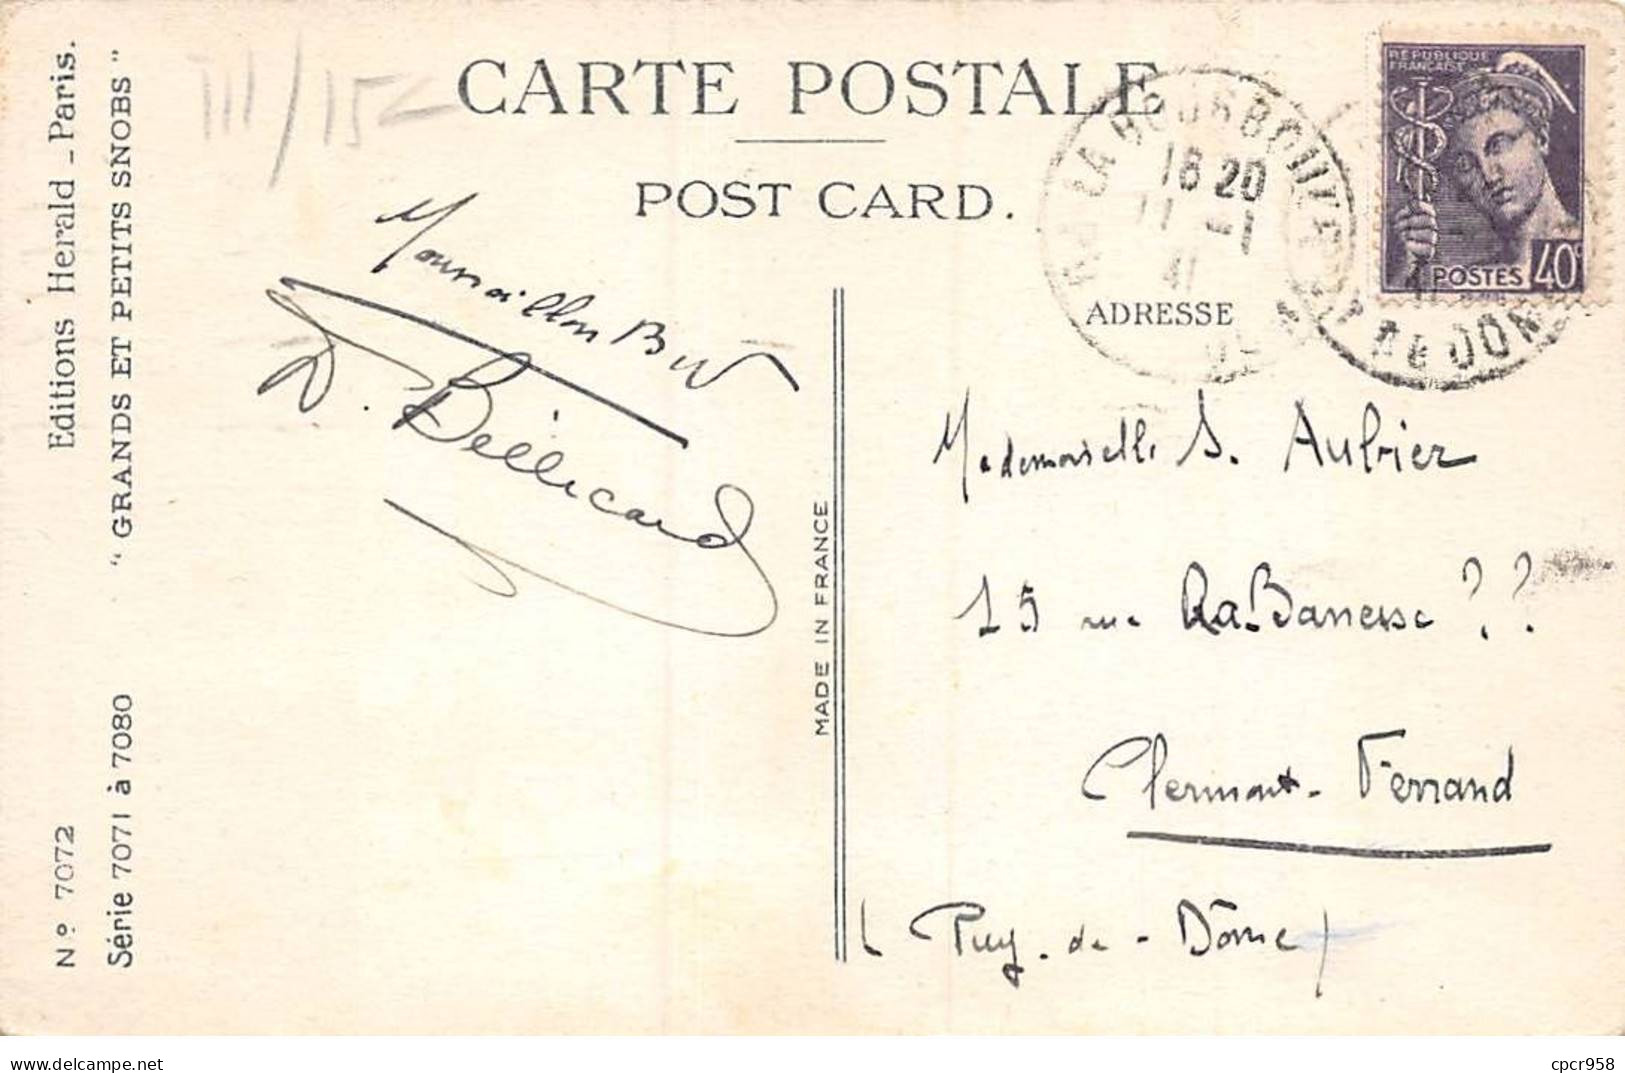 CARTE POSTALE
POST CARD.
III/15
Editions Herald - Paris.
" GRANDS ET PETITS SNOBS "
Nº 7072
Série 7071 à 7080
MADE IN FRANCE
ADRESSE
RÉPUBLIQUE
FRANÇAISE
POSTES 40c
LA BOURBOULE
18 20
11 -1
41
DE DOME
D. Bellicard
Mademoiselle S. Aubier
15 rue Ra-Banesse ??
Clermont-Ferrand
(Puy-de-Dôme)
cpcr958